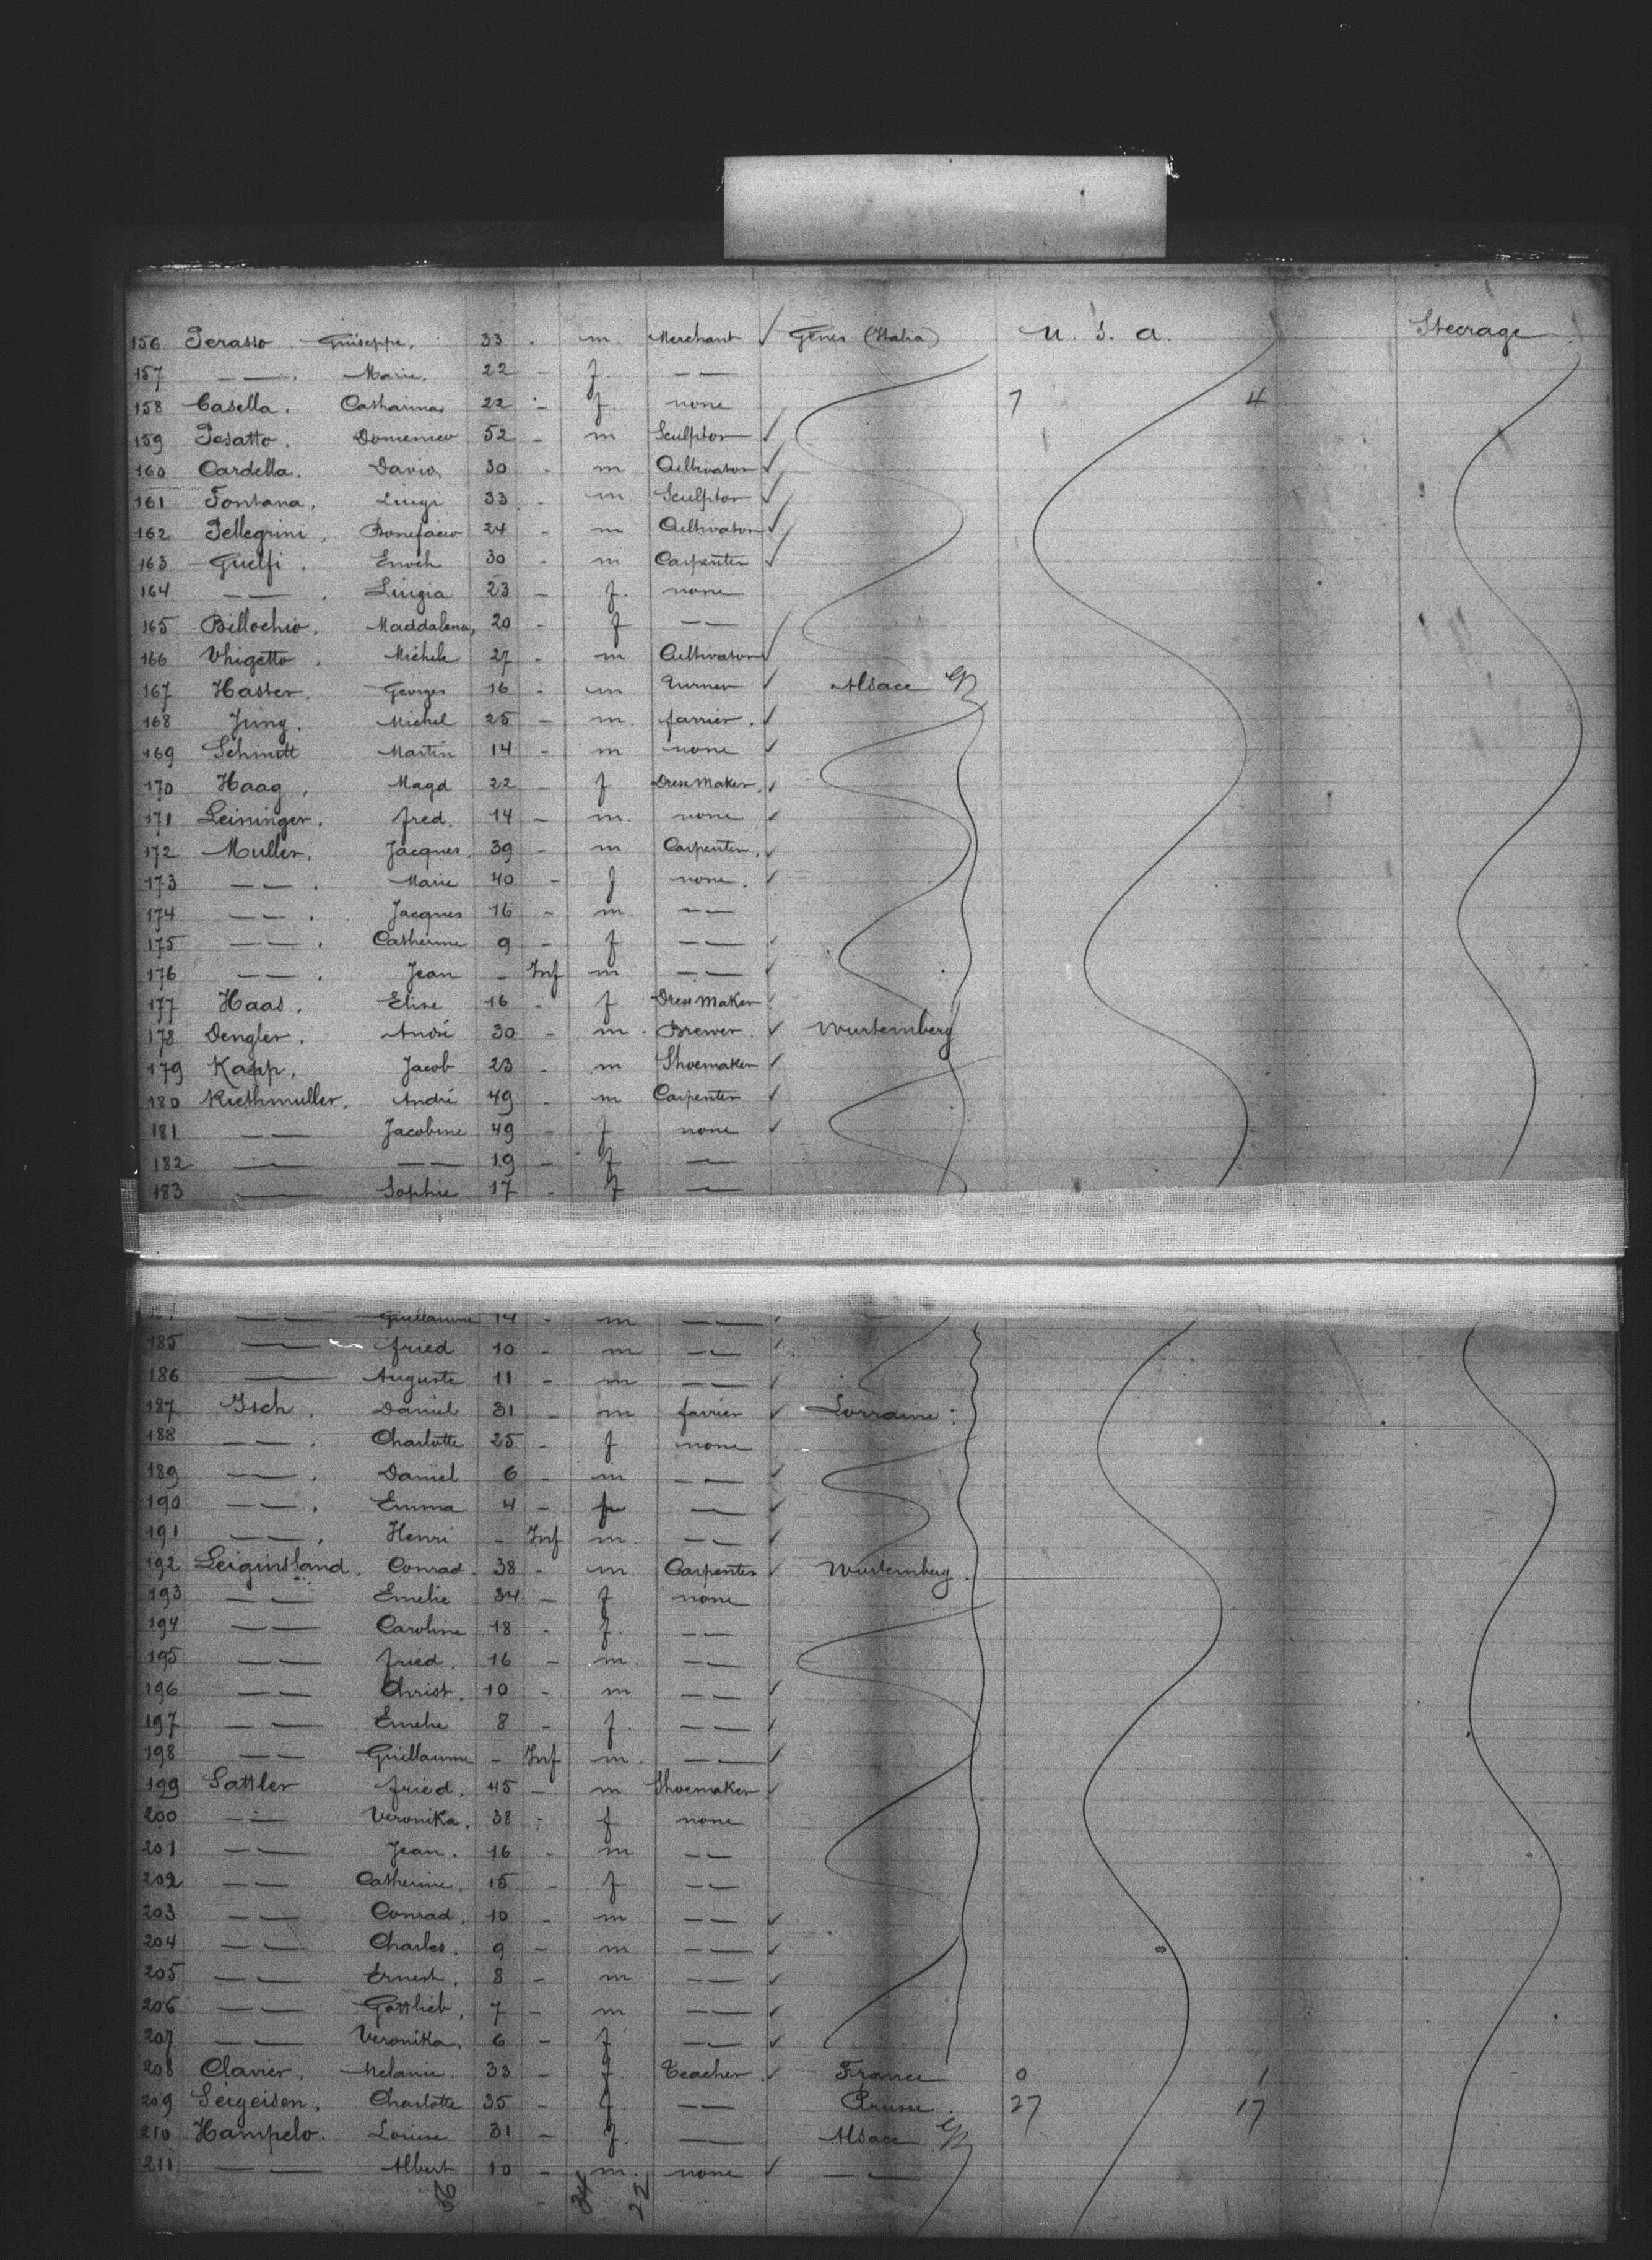 156 Perasso. Guiseppe. 33 - m. Merchant ✓ Gênes (Italia) U. S. A. Steerage
157 — — . Marie. 22 - f. — —
158 Casella. Catharina 22 - f. none 7 4
159 Pesatto. Domenico 52 - m Sculptor ✓
160 Cardella. David 30 - m Cultivator ✓
161 Fontana. Luigi 33 - m Sculptor ✓
162 Pellegrini, Bonefacio 24 - m Cultivator ✓
163 Guelfi. Enoch 30 - m Carpenter ✓
164 — — . Luigia 23 - f. none
165 Billochio. Maddalena, 20 - f — —
166 Vhigetto. Michele 27 - m Cultivator ✓
167 Hasser. Georges 16 - m Turner ✓ Alsace
168 Jung. Michel 25 - m. farrier. ✓
169 Schmitt Martin 14 - m none ✓
170 Haag, Magd 22 - f Dress Maker. ✓
171 Leininger. fred. 14 - m. none ✓
172 Muller. Jacques 39 - m Carpenter. ✓
173 — — . Marie 40 - f none. ✓
174 — — . Jacques 16 - m — —
175 — — . Catherine 9 - f — — ✓
176 — — . Jean - Inf m — — ✓
177 Haas. Elise 16 - f Dress Maker ✓
178 Dengler. André 30 - m. Brewer. ✓ Wurtemberg
179 Kapp, Jacob 23 - m Shoemaker ✓
180 Riethmuller. André 49 - m Carpenter ✓
181 — — Jacobine 49 - f none ✓
182 — — — — 19 - f —
183 — Sophie 17 - f —
— — Guillaume 14 - m — — ✓
185 — fried 10 - m — — ✓
186 — Auguste 11 - m — — ✓
187 Isch. Daniel 31 - m farrier ✓ Lorraine
188 — — . Charlotte 25 - f none
189 — — . Daniel 6 - m — — ✓
190 — — . Emma 4 - f — ✓
191 — — . Henri - Inf m — — ✓
192 Leiginsland. Conrad. 38 - m Carpenter ✓ Wurtemberg.
193 — — Emelie 34 - f none
194 — — Caroline 18 - f. — —
195 — — fried. 16 - m. — —
196 — — Christ. 10 - m — — ✓
197 — — Emelie 8 - f. — — ✓
198 — — Guillaume - Inf m. — — ✓
199 Sattler fried. 45 - m Shoemaker ✓
200 — — Veronika. 38 - f none
201 — — Jean. 16 - m — —
202 — — Catherine. 15 - f — —
203 — — Conrad. 10 - m — — ✓
204 — — Charles. 9 - m — — ✓
205 — — Ernest. 8 - m — — ✓
206 — — Gottlieb, 7 - m — — ✓
207 — — Veronika. 6 - f — — ✓
208 Clavier. Melanie. 33 - f. Teacher. ✓ France 0 1
209 Sergeison. Charlotte 35 - f. — — Prusse. 27 17
210 Hampelo. Louise 31 - f. — Alsace
211 — — Albert 10 - m. none ✓ — —
56 34 22